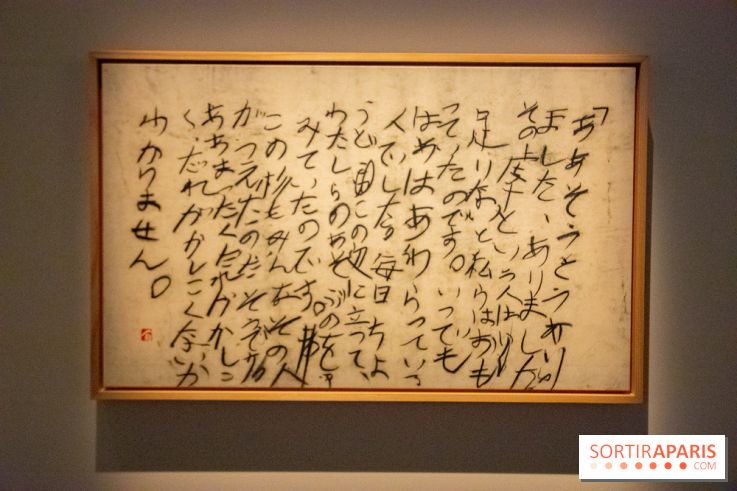 「ああそうそうあり
ました、ありました
その虔十という人は少し
足りないと私らはおも
っていたのです。いつでも
はあはあわらっている
人でした毎日ちょ
うどこの辺に立って、
わたしらのあそぶのを
みていたのです。
この杉もみんなその人
がうえたのだそうです
ああまったくだれがかしこ
くだれがかしこくないか
わかりません。
SORTIRAPARIS
.COM